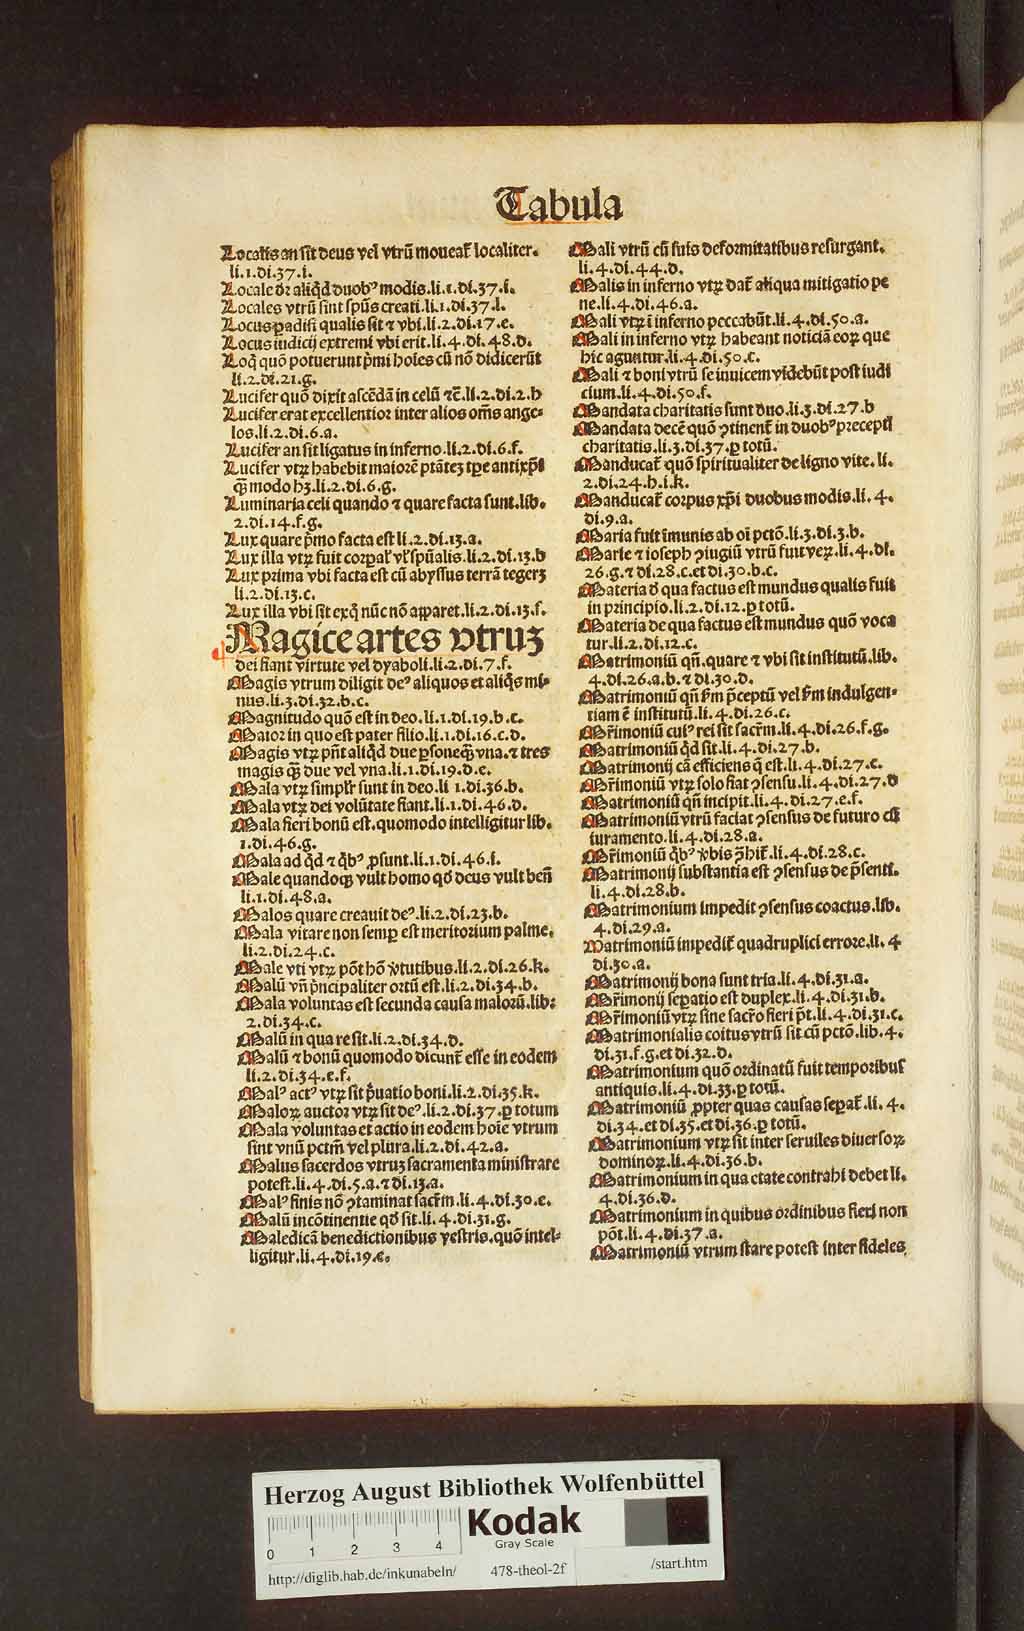 Tabula
Localis an sit deus vel vtrū moueat̄ localiter.
li.1.di.37.i.
Locale dr̄ aliqd̄ duobꝰ modis.li.1.di.37.i.
Locales vtrū sint spūs creati.li.1.di.37.l.
Locus padisi qualis sit ⁊ vbi.li.2.di.17.e.
Locus iudicij extremi vbi erit.li.4.di.48.d.
Loq̄ quō potuerunt pͥmi hoīes cū nō didicerūt
li.2.di.21.g.
Lucifer quō dixit ascēdā in celū ⁊c̄.li.2.di.2.b
Lucifer erat excellentior inter alios om̄s ange-
los.li.2.di.6.a.
Lucifer an sit ligatus in inferno.li.2.di.6.f.
Lucifer vtꝝ habebit maiorē ptātez tp̄e antixp̄i
q̄ꝫ modo hꝫ.li.2.di.6.g.
Luminaria celi quando ⁊ quare facta sunt.lib.
2.di.14.f.g.
Lux quare pͥmo facta est li.2.di.13.a.
Lux illa vtꝝ fuit corpal̄ vl̄ spūalis.li.2.di.13.b
Lux prima vbi facta est cū abyssus terrā tegerꝫ
li.2.di.13.c.
Lux illa vbi sit exq̄ nūc nō apparet.li.2.di.13.f.
Magice artes vtruꝫ
dei fiant virtute vel dyaboli.li.2.di.7.f.
Magis vtrum diligit deꝰ aliquos et aliq̄s mi-
nus.li.3.di.32.b.c.
Magnitudo quō est in deo.li.1.di.19.b.c.
Maior in quo est pater filio.li.1.di.16.c.d.
Magis vtꝝ pn̄t aliqd̄ due psone q̄ꝫ vna.⁊ tres
magis q̄ꝫ due vel vna.li.1.di.19.d.e.
Mala vtꝝ simpl̄r sunt in deo.li 1.di.36.b.
Mala vtꝝ dei volūtate fiant.li.1.di.46.d.
Mala fieri bonū est.quomodo intelligitur lib.
1.di.46.g.
Mala ad qd̄ ⁊ qͥbꝰ ꝓsunt.li.1.di.46.i.
Male quandoqꝫ vult homo qd̄ deus vult ben̄
li.1.di.48.a.
Malos quare creauit deꝰ.li.2.di.23.b.
Mala vitare non semp est meritorium palme.
li.2.di.24.c.
Male vti vtꝝ pōt hō v̓tutibus.li.2.di.26.k.
Malū vn̄ pͥncipaliter ortū est.li.2.di.34.b.
Mala voluntas est secunda causa malorū.lib:
2.di.34.c.
Malū in qua re sit.li.2.di.34.d.
Malū ⁊ bonū quomodo dicunt̄ esse in eodem
li.2.di.34.e.f.
Malꝰ actꝰ vtꝝ sit pͥuatio boni.li.2.di.35.k.
Maloꝝ auctor vtꝝ sit deꝰ.li.2.di.37.ꝑ totum
Mala voluntas et actio in eodem hoīe vtrum
sint vnū pctm̄ vel plura.li.2.di.42.a.
Malus sacerdos vtruꝫ sacramenta ministrare
potest.li.4.di.5.a.⁊ di.13.a.
Malꝰ finis nō ꝯtaminat sacr̄m.li.4.di.30.e.
Malū incōtinentie qd̄ sit.li.4.di.31.g.
Maledicā benedictionibus vestris.quō intel-
ligitur.li.4.di.19.e.
Mali vtrū cū suis deformitatibus resurgant.
li.4.di.44.d.
Malis in inferno vtꝝ dat̄ aliqua mitigatio pe
ne.li.4.di.46.a.
Mali vtꝝ ī inferno peccabūt.li.4.di.50.a.
Mali in inferno vtꝝ habeant noticiā eoꝝ que
hic aguntur.li.4.di.50.c.
Mali ⁊ boni vtrū se inuicem videbūt post iudi
cium.li.4.di.50.f.
Mandata charitatis sunt duo.li.3.di.27.b
Mandata decē quō ꝯtinent̄ in duobꝰ pręcepti
charitatis.li.3.di.37.ꝑ totū.
Manducat̄ quō spiritualiter de ligno vite.li.
2.di.24.h.i.k.
Manducat̄ corpus xp̄i duobus modis.li.4.
di.9.a.
Maria fuit īmunis ab oī pctō.li.3.di.3.b.
Marie ⁊ ioseph ꝯiugiū vtrū fuit veꝝ.li.4.di.
26.g.⁊ di.28.c.et di.30.b.c.
Materia d̓ qua factus est mundus qualis fuit
in principio.li.2.di.12.ꝑ totū.
Materia de qua factus est mundus quō voca
tur.li.2.di.12.c.
Matrimoniū qn̄.quare ⁊ vbi sit institutū.lib.
4.di.26.a.b.⁊ di.30.d.
Matrimoniū qn̄ km̄ p̄ceptū vel km̄ indulgen-
tiam ē institutū.li.4.di.26.c.
Mr̄imoniū cuiꝰ rei sit sacr̄m.li.4.di.26.f.g.
Matrimoniū qd̄ sit.li.4.di.27.b.
Matrimonij cā efficiens q̄ est.li.4.di.27.c.
Mr̄imoniū vtꝝ solo fiat ꝯsensu.li.4.di.27.d
Matrimoniū qn̄ incipit.li.4.di.27.e.f.
Matrimoniū vtrū faciat ꝯsensus de futuro cū
iuramento.li.4.di.28.a.
Mr̄imoniū qͥbꝰ v̓bis ꝯ̄hit̄.li.4.di.28.c.
Matrimonij substantia est ꝯsensus de p̄senti.
li.4.di.28.b.
Matrimonium impedit ꝯsensus coactus.lib.
4.di.29.a.
Matrimoniū impedit̄ quadruplici errore.li.4
di.30.a.
Matrimonij bona sunt tria.li.4.di.31.a.
Mr̄imonij sepatio est duplex.li.4.di.31.b.
Mr̄imoniū vtꝝ sine sacr̄o fieri p̄t.li.4.di.31.c.
Matrimonialis coitus vtrū sit cū pctō.lib.4.
di.31.f.g.et di.32.d.
Matrimonium quō ordinatū fuit temporibus
antiquis.li.4.di.33.ꝑ totū.
Matrimoniū ꝓpter quas causas sepat̄.li.4.
di.34.et di.35.et di.36.ꝑ totū.
Matrimonium vtꝝ sit inter seruiles diuersoꝝ
dominoꝝ.li.4.di.36.b.
Matrimonium in qua etate contrahi debet li.
4.di.36.d.
Matrimonium in quibus ordinibus fieri non
pōt.li.4.di.37.a.
Matrimoniū vtrum stare potest inter fideles
Herzog August Bibliothek Wolfenbüttel
0 1 2 3 4
Kodak
Gray Scale
http://diglib.hab.de/inkunabeln/ 478-theol-2f /start.htm